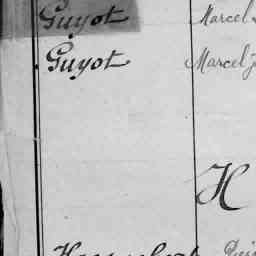 Guyot Marcel
Guyot Marcel J
H